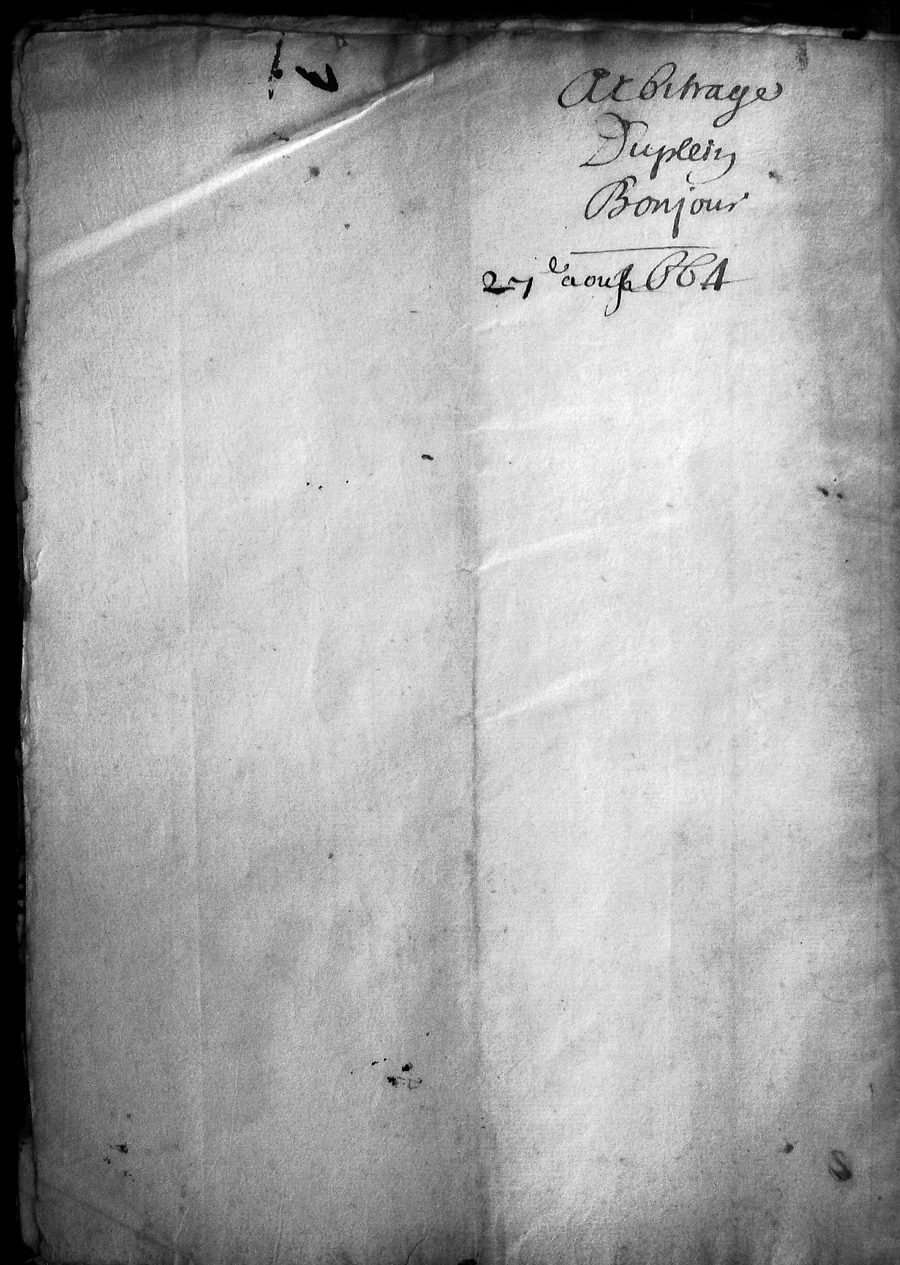 Arbitrage
Duplein
Bonjour
27e aoust 664